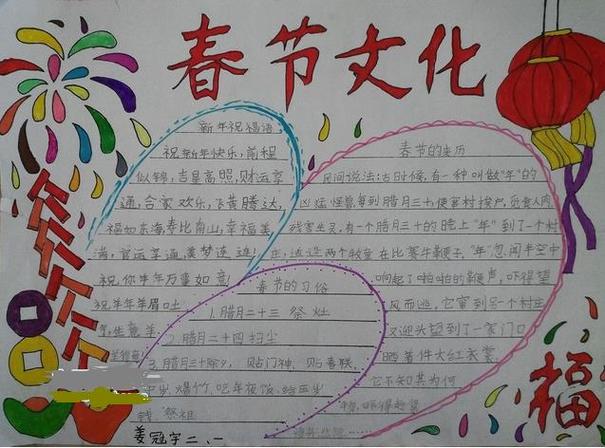 春节文化
新年祝福语
祝新年快乐，前程
似锦，吉星高照，财运亨
通，合家欢乐，飞黄腾达，
福如东海，寿比南山，幸福美
满，官运亨通，美梦连连！
祝你羊年万事如意！
祝羊年羊眉吐
春节的来历
民间说法：古时候，有一种叫做"年"的
凶猛怪兽，每到腊月三十，便窜村挨户，觅食人肉
残害生灵，有一个腊月三十的晚上"年"到了一个村
庄，适逢两个牧童在比赛牛鞭子，"年"忽闻半空中
响起了啪啪的鞭声，吓得望
风而逃，它窜到另一个村庄
又迎头望到了一家门口
晒着件大红衣裳
它不知其为何
物，吓得
春节的习俗
1.腊月二十三 祭灶
2.腊月二十四扫尘
3.腊月三十除夕，贴门神、贴春联、
守岁、爆竹、吃年夜饭、给压岁
钱、祭祖
福
姜冠宇二、一